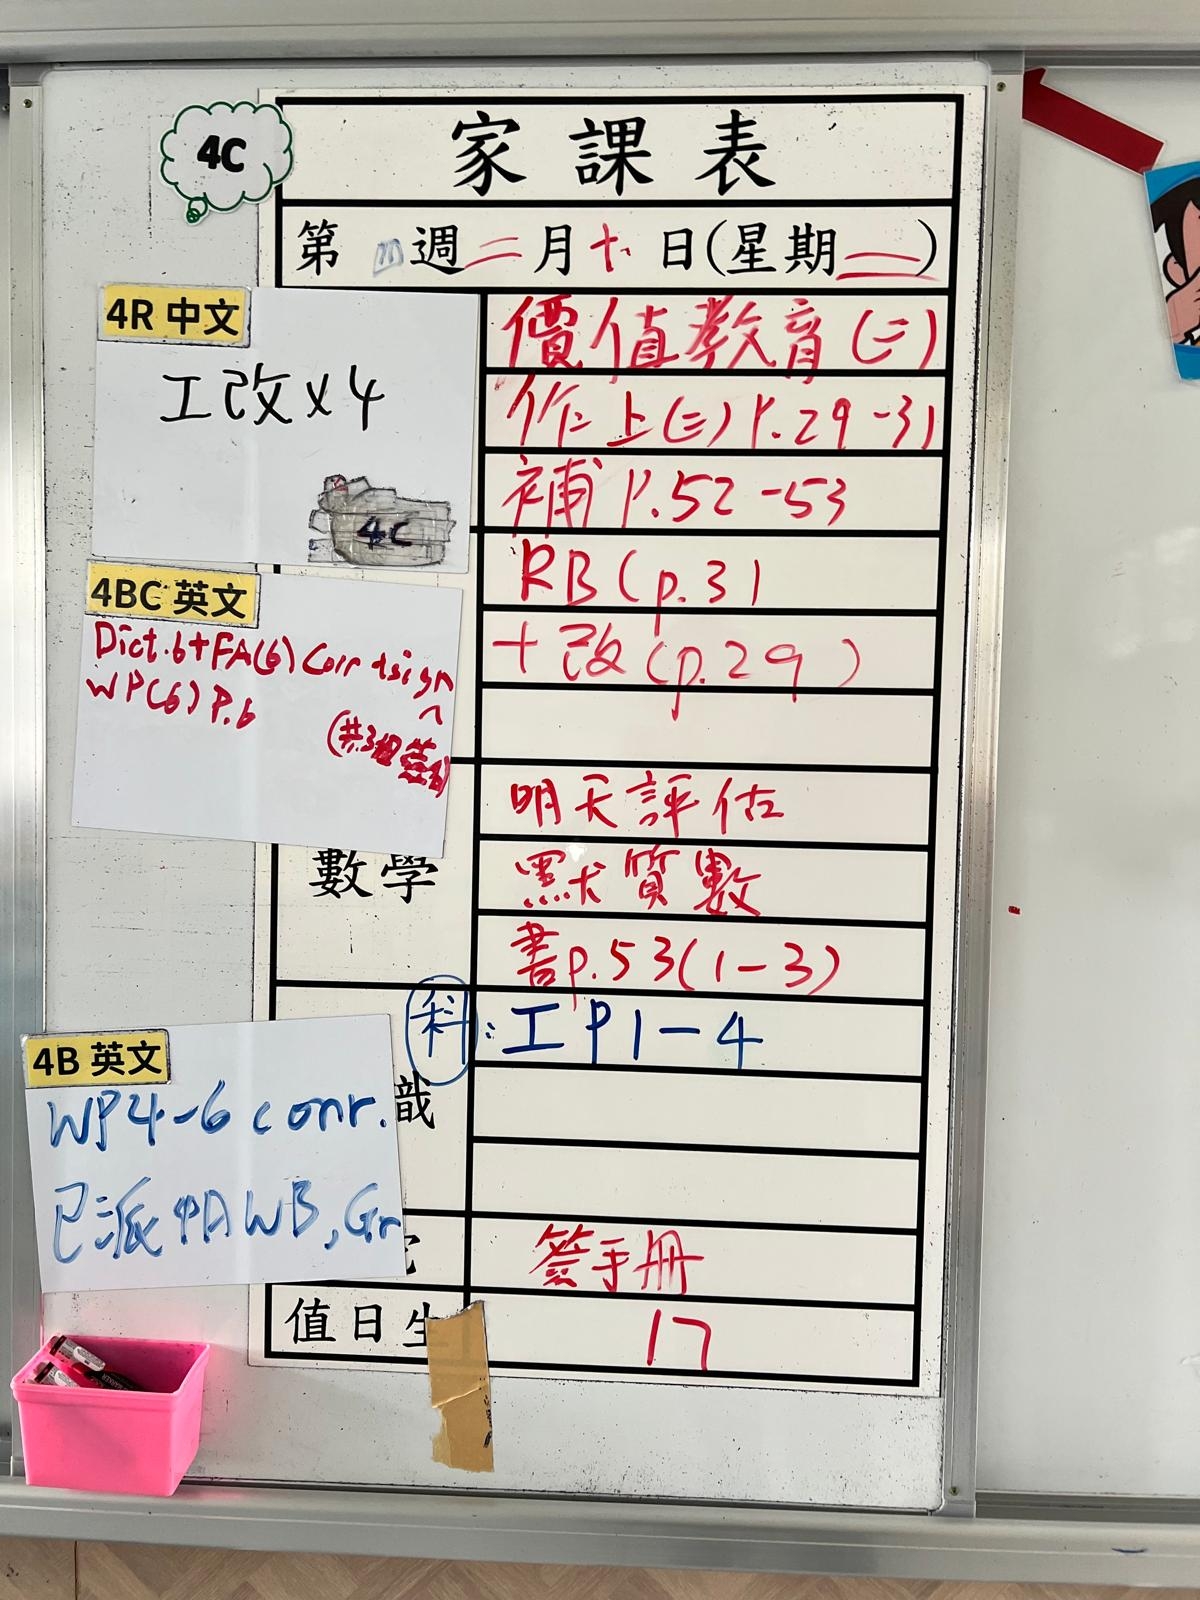 4C
家課表
第四週二月十日(星期二)
4R 中文
工改x4
4C
價值教育(二)
作上(三)P.29-31
補P.52-53
4BC 英文
Dict.6+FA(6) Corr+sign
WP(6) P.6
(共3個簽名)
RB(p.3)
+改(p.29)
數學
明天評估
默質數
書p.53(1-3)
科:工P1-4
識
4B 英文
WP4-6 corr.
已派 WB, Gr
簽手冊
值日生
17